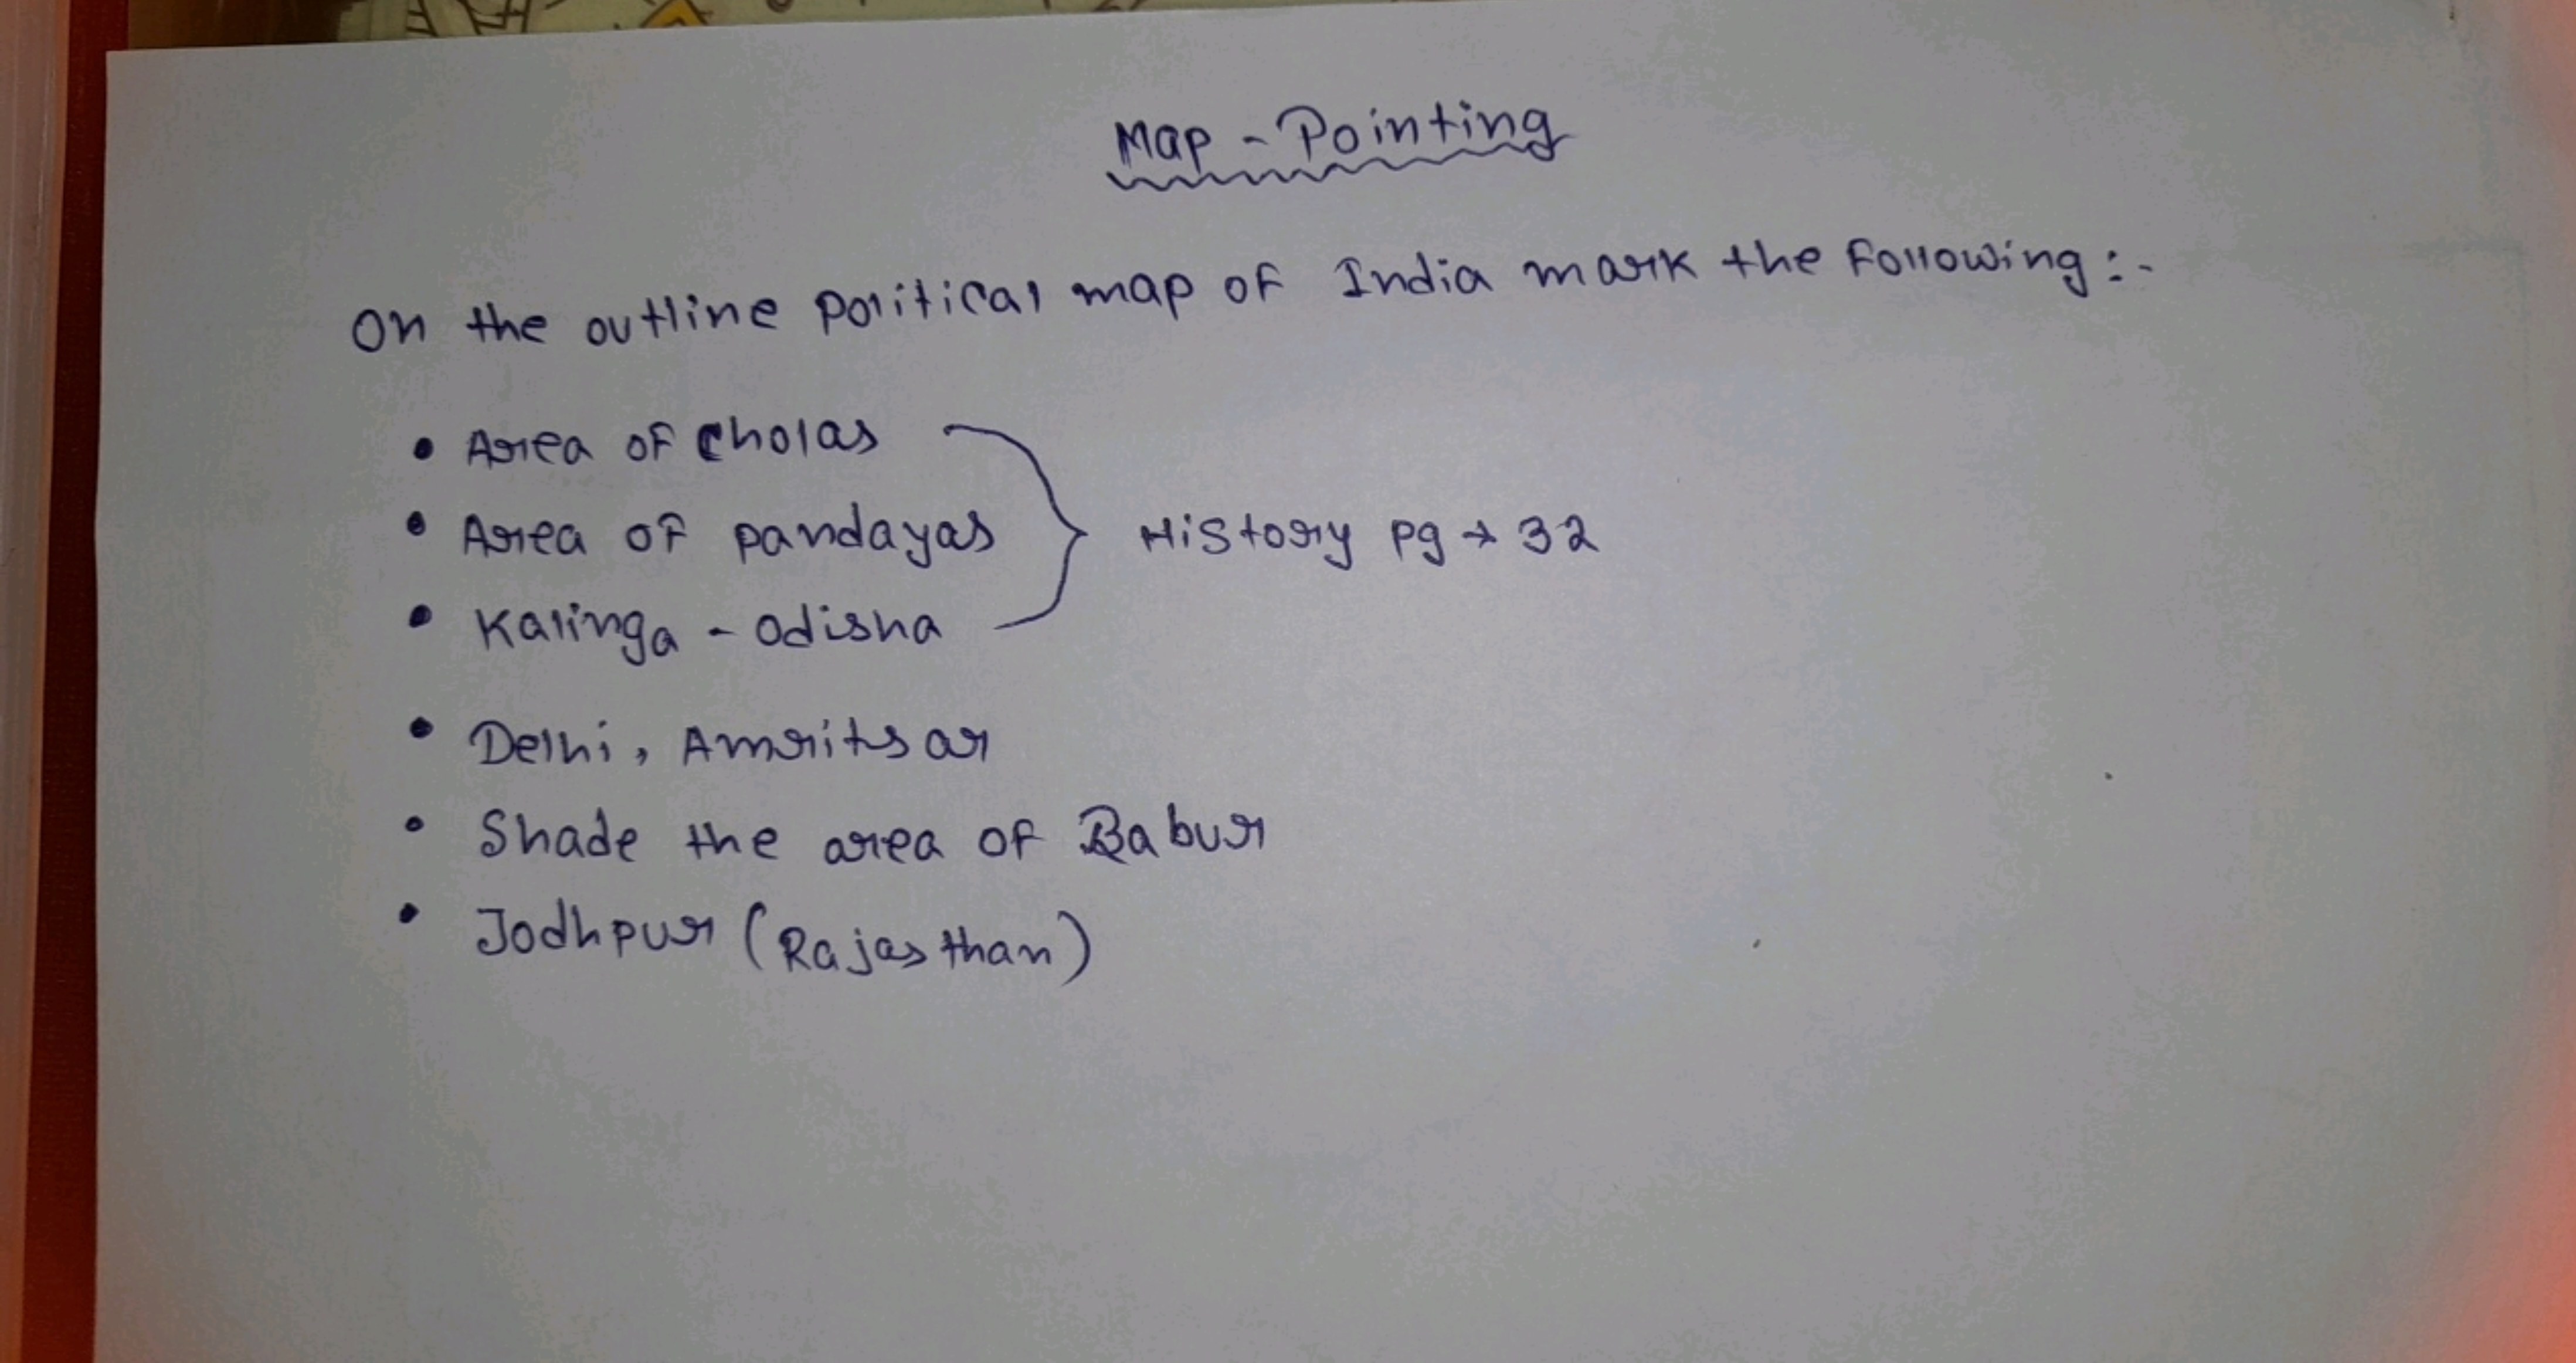 Map - Pointing
On the outline political map of India mark the following :-
• Area of cholas
• Area of pandayas
• Kalinga - odisha
History pg → 32
• Delhi, Amritsar
• Shade the area of Babur
• Jodhpur (Rajasthan)